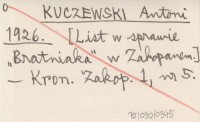 KUCZEWSKI Antoni
1926. [List w sprawie
„Bratniaka" w Zakopanem.]
— Kron. Zakop. 1, nr 5.